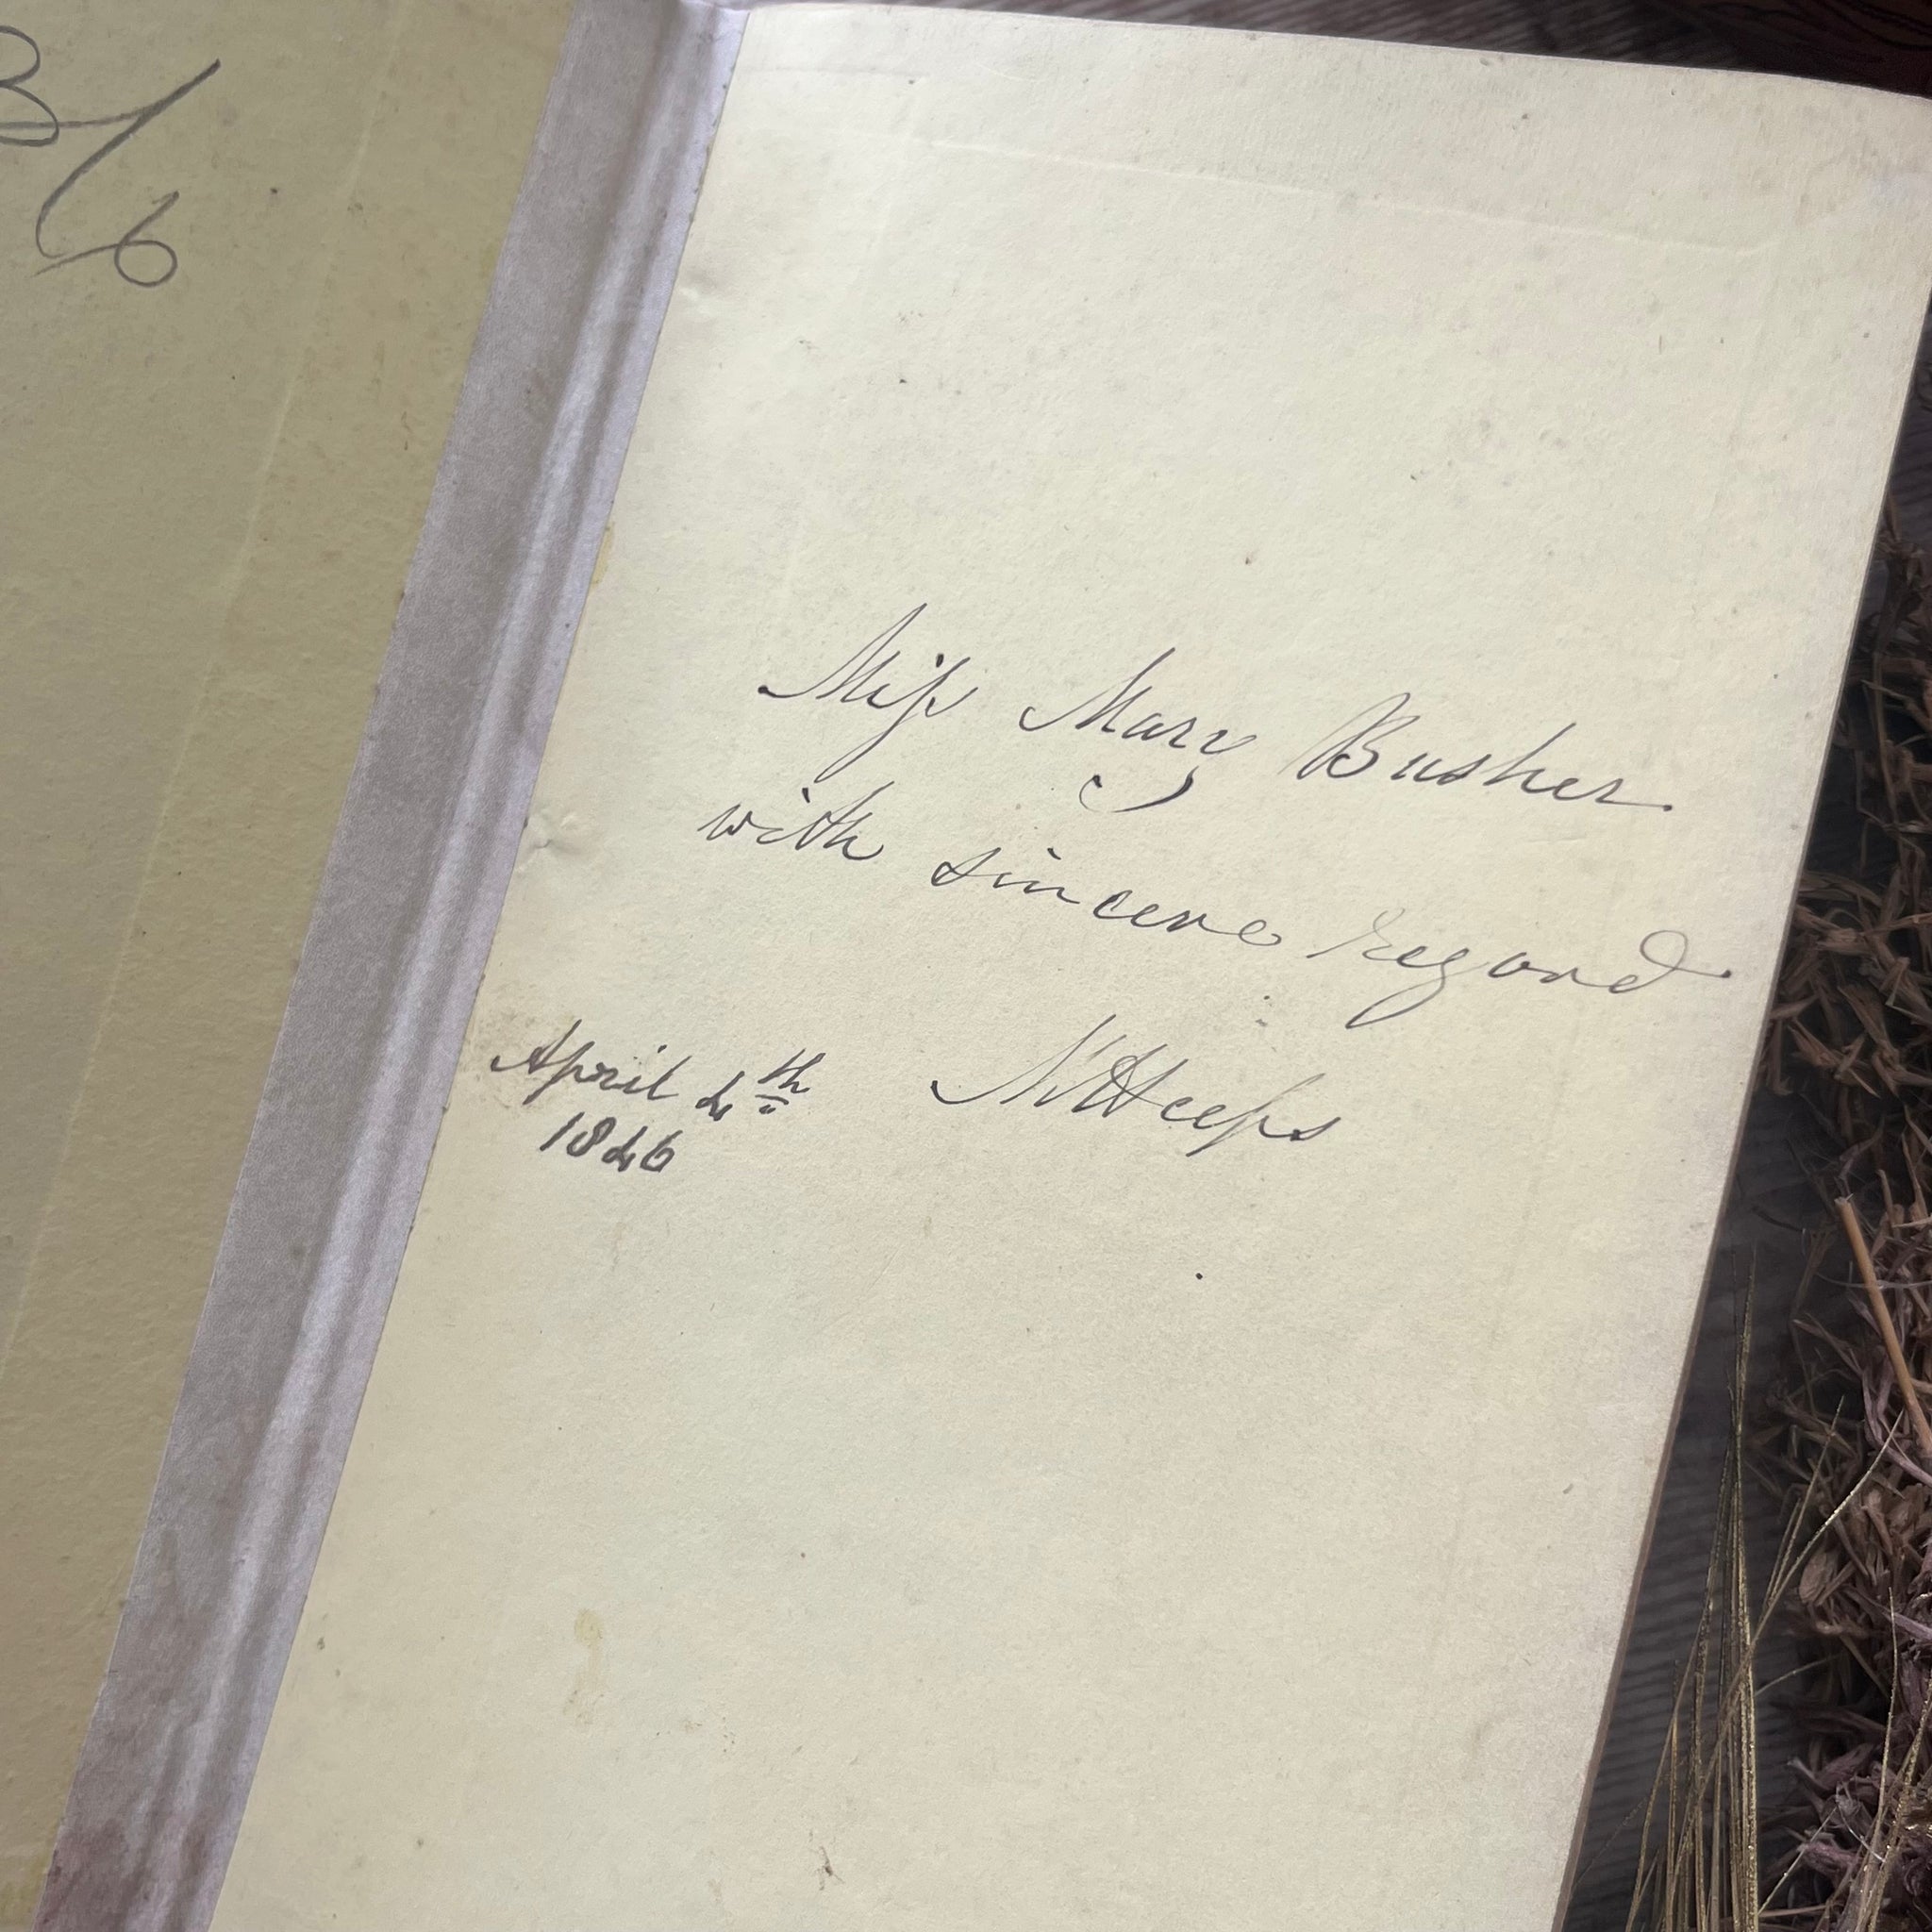 3/6
Miss Mary Busher
with sincere regard
April 4th
1846